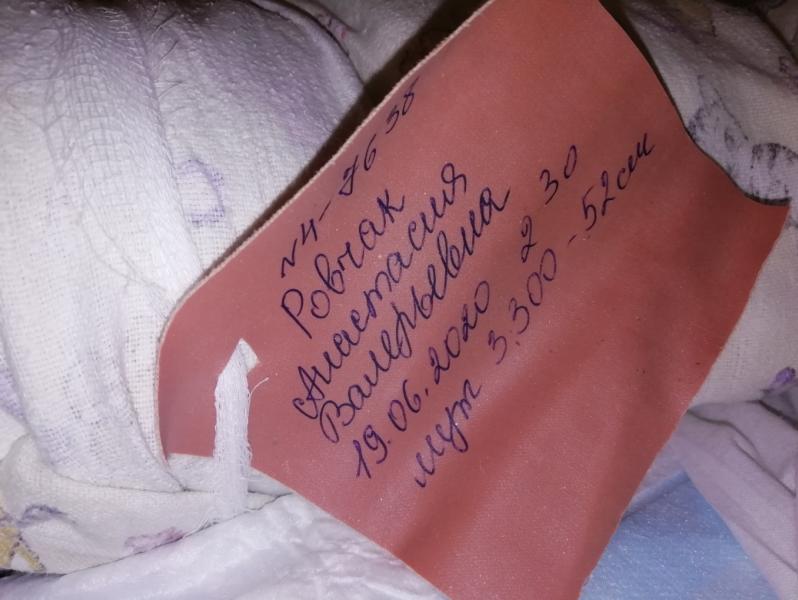 N4-7638
Ровчак
Анастасия
Валерьевна
19.06.2020 2 30
муж 3,300-52см